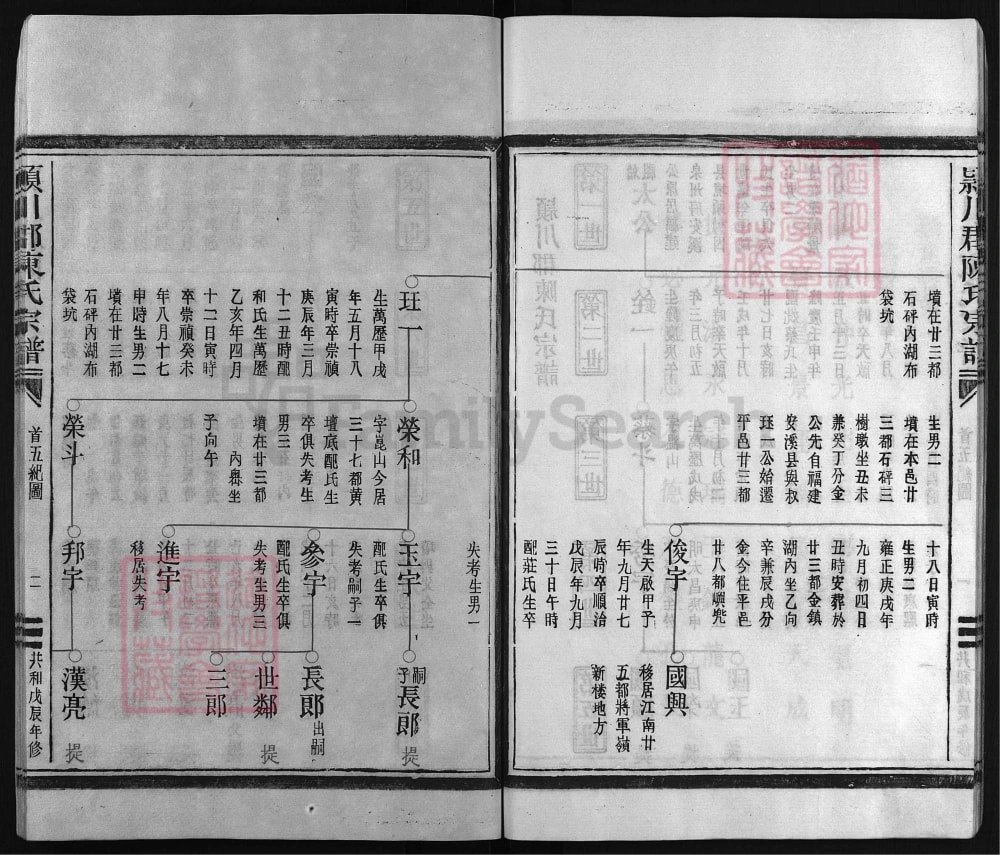 潁川郡陳氏宗譜
首五紀圖
墳在廿三都
石砰内湖布
袋坑
生男二
墳在本邑廿
三都石砰三
樹墩坐丑未
兼癸丁分金
公先自福建
安溪縣與叔
珏一公始遷
平邑廿三都
十八日寅時
生男二
雍正庚戌年
九月初四日
丑時安葬於
廿三都金鎮
湖内坐乙向
辛兼辰戌分
金今住平邑
廿八都嶼兜
俊宇
生天啟甲子
年九月廿七
辰時卒順治
戊辰年九月
三十日午時
配莊氏生卒
國興
移居江南廿
五都將軍嶺
新楼地方
失考生男一
珏一
生萬歷甲戌
年五月十八
寅時卒崇禎
庚辰年三月
十二丑時配
和氏生萬歷
乙亥年四月
十二日寅時
卒崇禎癸未
年八月十七
申時生男二
墳在廿三都
石砰内湖布
袋坑
榮和
字崑山今居
三十七都黄
壇底配氏生
卒俱失考生
男三
墳在廿三都
内嶴坐
子向午
榮斗
玉宇
配氏生卒俱
失考嗣子一
參宇
配氏生卒俱
失考生男三
進宇
移居失考
邦宇
嗣子長郎 提
長郎 出嗣
世鄰 提
三郎
漢亮 提
潁川郡陳氏宗譜
首五紀圖
二
共和戊辰年修
FamilySearch